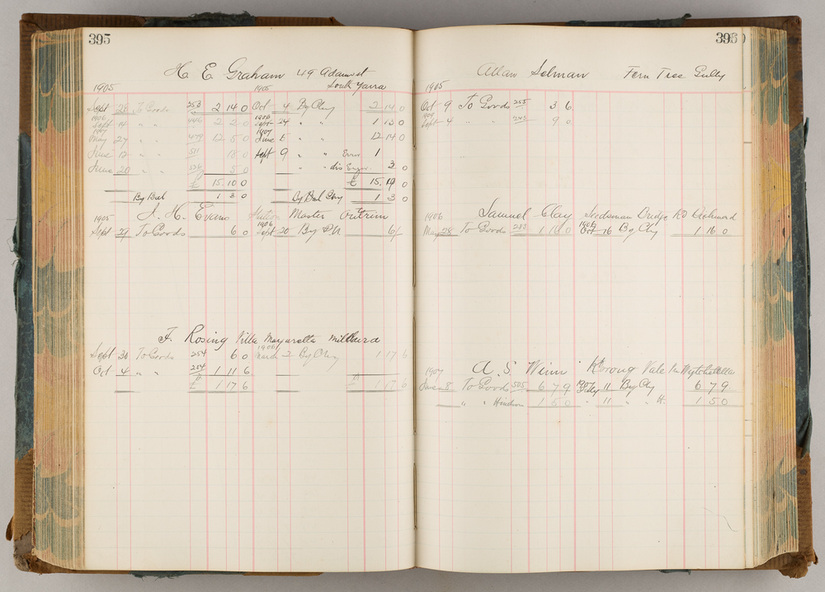 395
H. E. Graham 49 Adams st
South Yarra
1905 1905
Sept 28 To Goods 253 2 14 0 Oct 4 By Chq 2 14 0
Sept 14 " " 2 2 0 Sept 24 " " 1 13 0
May 27 " " 12 5 0 June 5 " " 12 14 0
June 12 " " 18 0 Sept 9 " " 1
June 20 " " 5 0 " " 3 0
£ 15 10 0 £ 15 19 0
By Bal 1 3 0 By Bal 1 3 0
1905 J. H. Evans Station Master Outtrim
Sept 21 To Goods 6 0 Sept 20 By P N 6/-
F. Rosing Villa Margaretta Mildura
Sept 30 To Goods 254 6 0 March 2 By Chq 1 17 6
Oct 4 " " 254 1 11 6
£ 1 17 6 £ 1 17 6
393
Allan Selman Fern Tree Gully
1905
Oct 9 To Goods 255 3 6
Sept 4 " " 9 0
1906 Samuel Clay Seedsman Rd
May 28 To Goods 1 16 0 1906 Oct 16 By Chq 1 16 0
A. S. Winn Korong Vale
1907
June 8 To Goods 505 6 7 9 July 11 By Chq 6 7 9
" " 1 5 0 " 11 " " 1 5 0